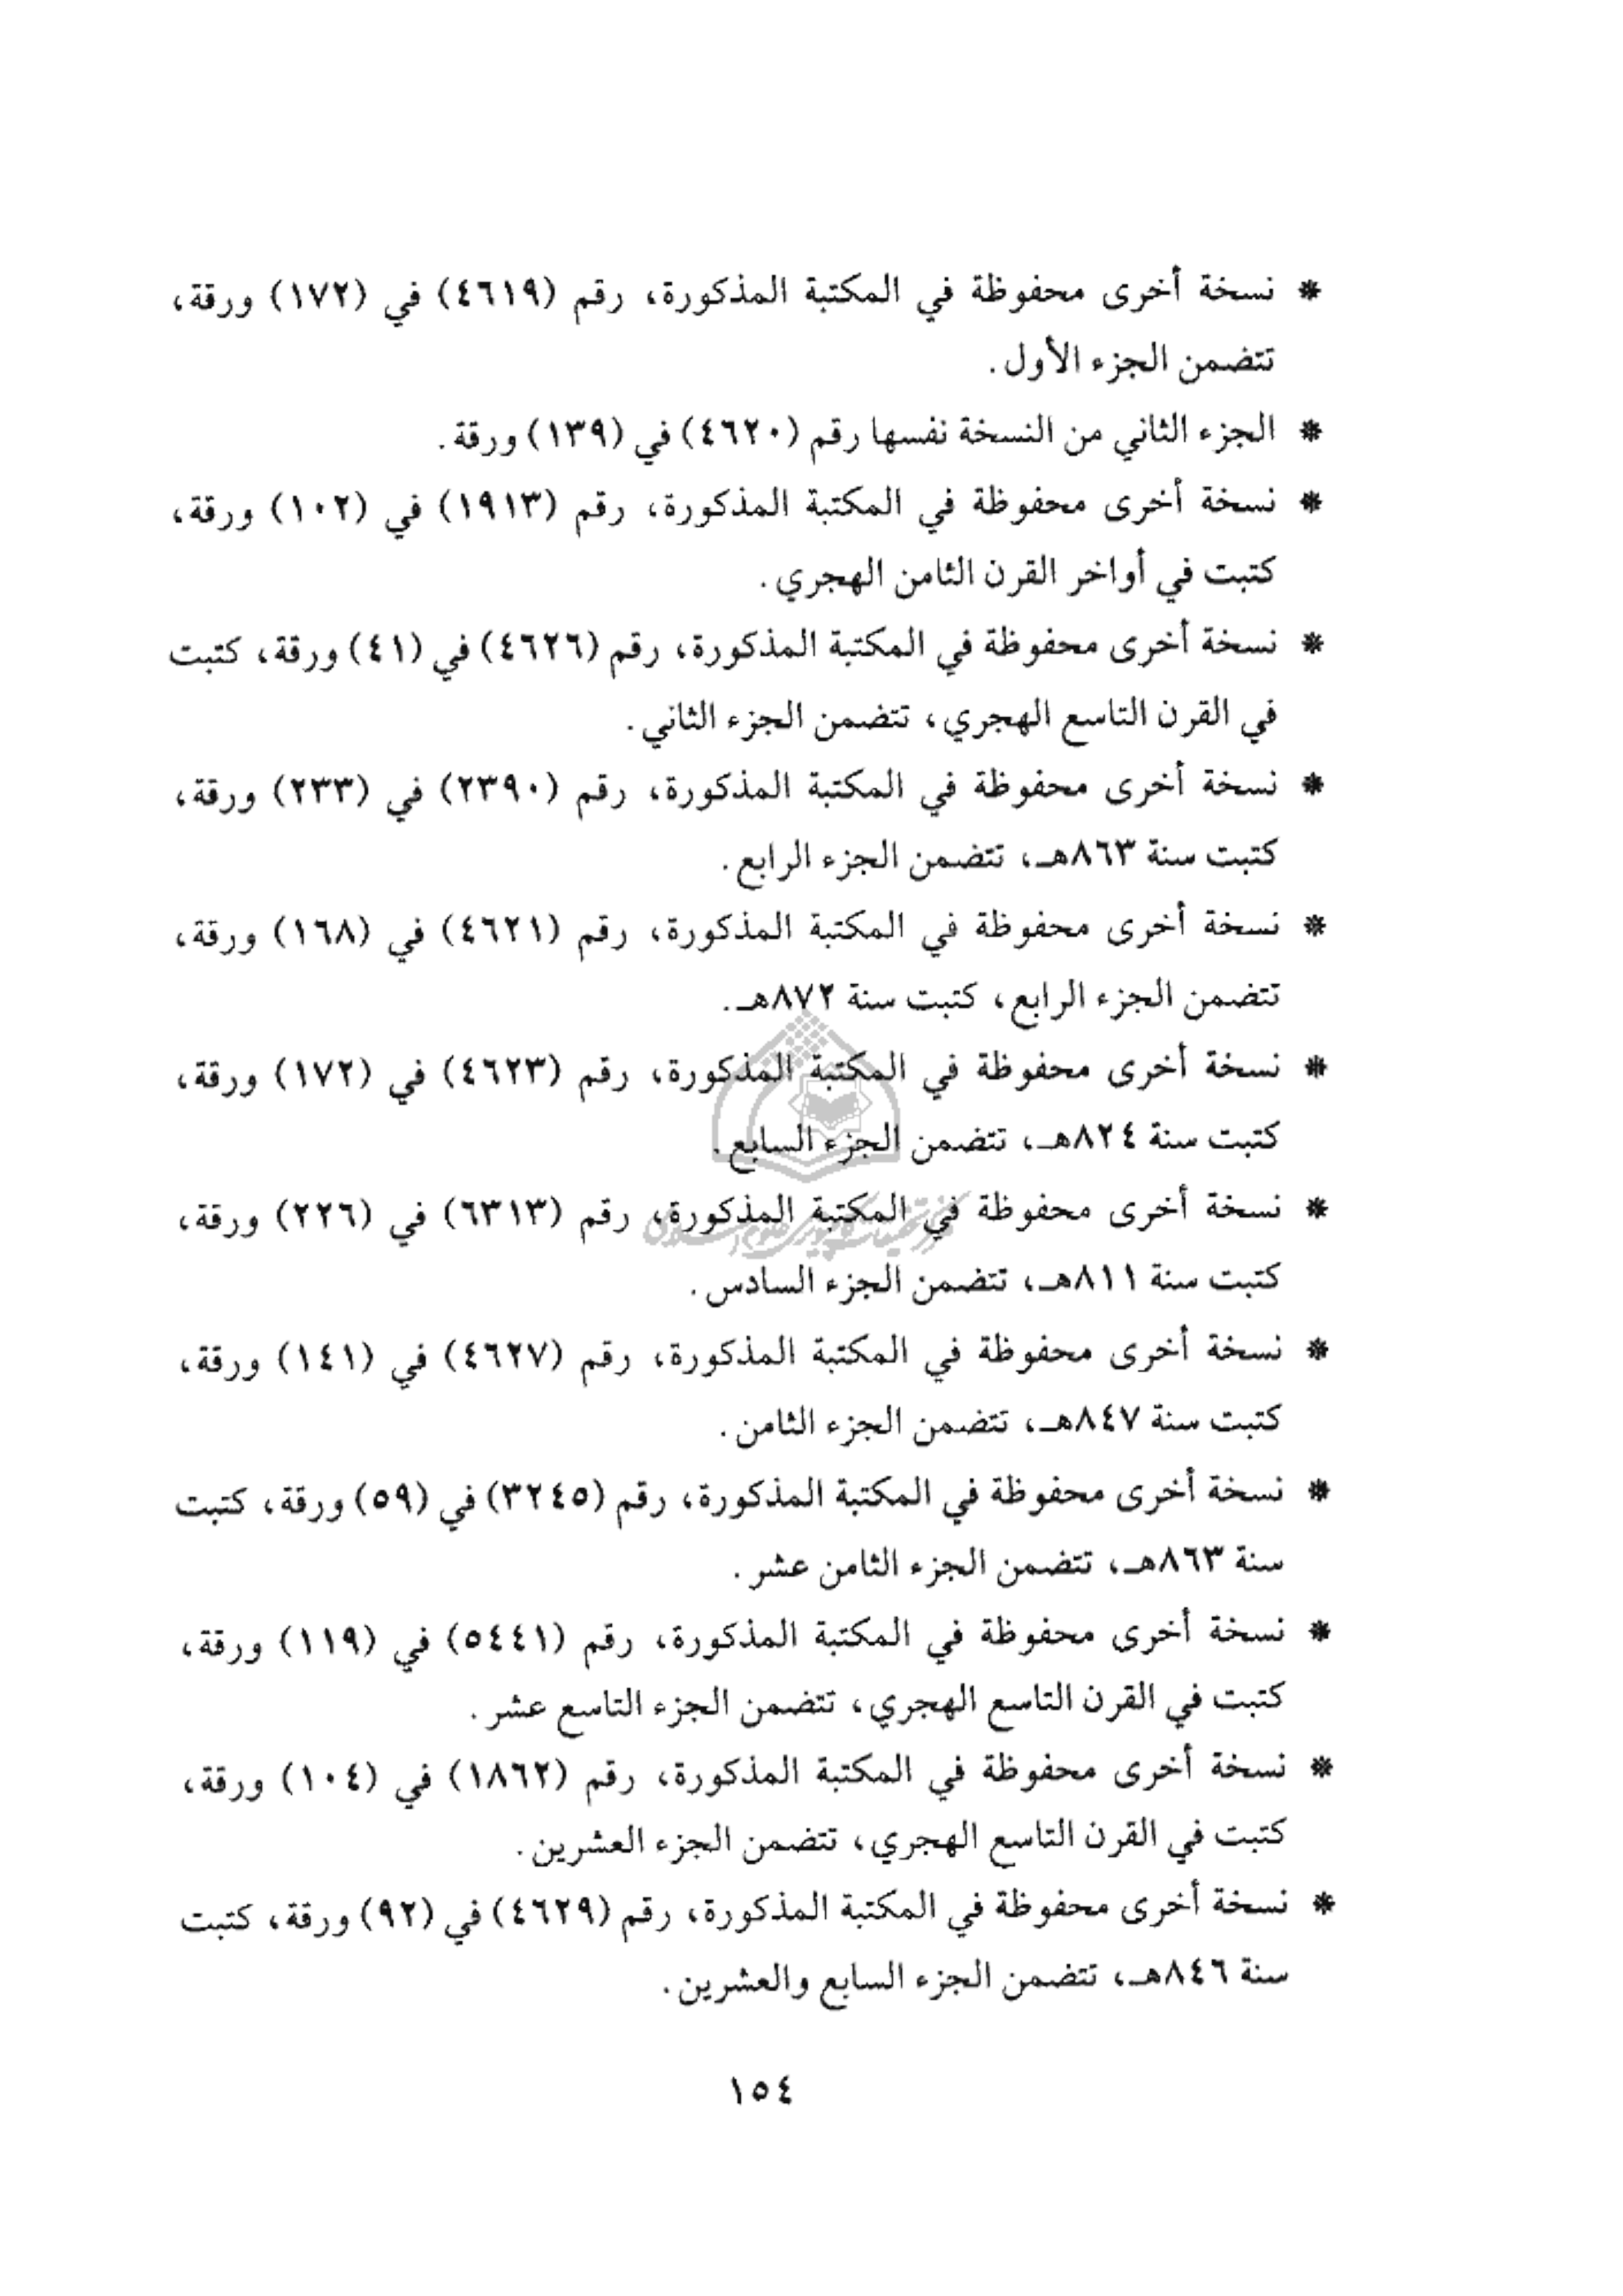 * نسخة أخرى محفوظة في المكتبة المذكورة، رقم (٤٦١٩) في (١٧٢) ورقة،
تتضمن الجزء الأول.
* الجزء الثاني من النسخة نفسها رقم (٤٦٢٠) في (١٣٩) ورقة.
* نسخة أخرى محفوظة في المكتبة المذكورة، رقم (١٩١٣) في (١٠٢) ورقة،
كتبت في أواخر القرن الثامن الهجري.
* نسخة أخرى محفوظة في المكتبة المذكورة، رقم (٤٦٢٦) في (٤١) ورقة، كتبت
في القرن التاسع الهجري، تتضمن الجزء الثاني.
* نسخة أخرى محفوظة في المكتبة المذكورة، رقم (٢٣٩٠) في (٢٣٣) ورقة،
كتبت سنة ٨٦٣هـ، تتضمن الجزء الرابع.
* نسخة أخرى محفوظة في المكتبة المذكورة، رقم (٤٦٢١) في (١٦٨) ورقة،
تتضمن الجزء الرابع، كتبت سنة ٨٧٢هـ.
* نسخة أخرى محفوظة في المكتبة المذكورة، رقم (٤٦٢٣) في (١٧٢) ورقة،
كتبت سنة ٨٢٤هـ، تتضمن الجزء السابع.
* نسخة أخرى محفوظة في المكتبة المذكورة، رقم (٦٣١٣) في (٢٢٦) ورقة،
كتبت سنة ٨١١هـ، تتضمن الجزء السادس.
* نسخة أخرى محفوظة في المكتبة المذكورة، رقم (٤٦٢٧) في (١٤١) ورقة،
كتبت سنة ٨٤٧هـ، تتضمن الجزء الثامن.
* نسخة أخرى محفوظة في المكتبة المذكورة، رقم (٣٢٤٥) في (٥٩) ورقة، كتبت
سنة ٨٦٣هـ، تتضمن الجزء الثامن عشر.
* نسخة أخرى محفوظة في المكتبة المذكورة، رقم (٥٤٤١) في (١١٩) ورقة،
كتبت في القرن التاسع الهجري، تتضمن الجزء التاسع عشر.
* نسخة أخرى محفوظة في المكتبة المذكورة، رقم (١٨٦٢) في (١٠٤) ورقة،
كتبت في القرن التاسع الهجري، تتضمن الجزء العشرين.
* نسخة أخرى محفوظة في المكتبة المذكورة، رقم (٤٦٢٩) في (٩٢) ورقة، كتبت
سنة ٨٤٦هـ، تتضمن الجزء السابع والعشرين.
١٥٤